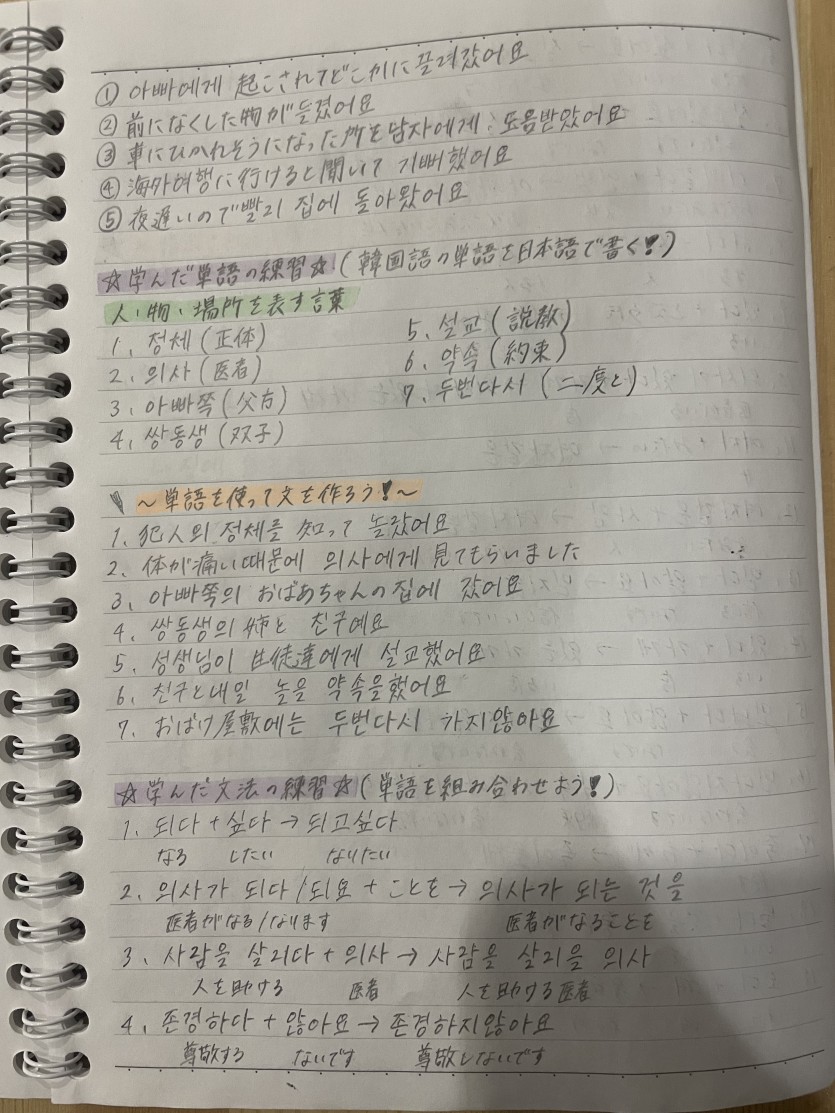 ① 아빠에게 起こされてどこかに 끌려갔어요
② 前になくした物が 들겼어요
③ 車にひかれそうになった所を 남자에게 도움받았어요
④ 海外여행に行けると聞いて 기뻐했어요
⑤ 夜遅いので빨리 집에 돌아왔어요
☆学んだ単語の練習☆(韓国語の単語を日本語で書く!)
人・物・場所を表す言葉
1. 정체(正体)
2. 의사(医者)
3. 아빠쪽(父方)
4. 쌍동생(双子)
5. 설교(説教)
6. 약속(約束)
7. 두번다시(二度と)
~単語を使って文を作ろう!~
1. 犯人의 정체를 知って 놀랐어요
2. 体が痛い때문에 의사에게 見てもらいました
3. 아빠쪽의 おばあちゃんの집에 갔어요
4. 쌍동생의 姉と 친구예요
5. 성생님이 生徒達에게 설교했어요
6. 친구と내일 놀을 약속을했어요
7. おばけ屋敷에는 두번다시 가지않아요
☆学んだ文法の練習☆(単語を組み合わせよう!)
1. 되다+싶다→되고싶다
なる したい なりたい
2. 의사가 되다/되요+ことを→의사가 되는 것을
医者がなる/なります 医者がなることを
3. 사람을 살리다+의사→사람을 살리을 의사
人を助ける 医者 人を助ける医者
4. 존경하다+않아요→존경하지않아요
尊敬する ないです 尊敬しないです